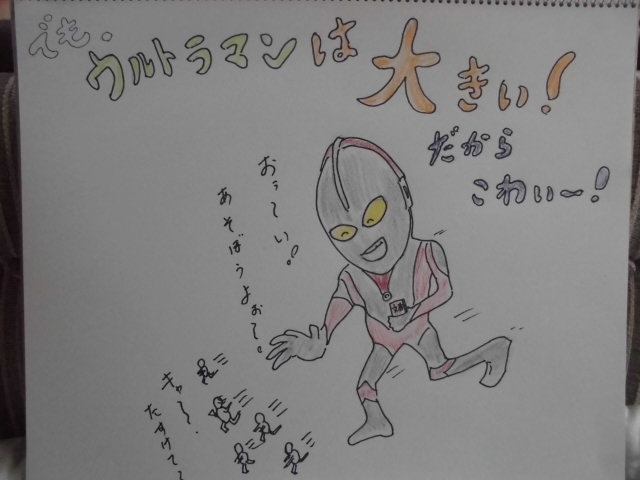 えも.
ウルトラマンは大きい!
だから
こわい〜!
おぅーい!
あそぼうよぉ〜。
キャー.
たすけて〜